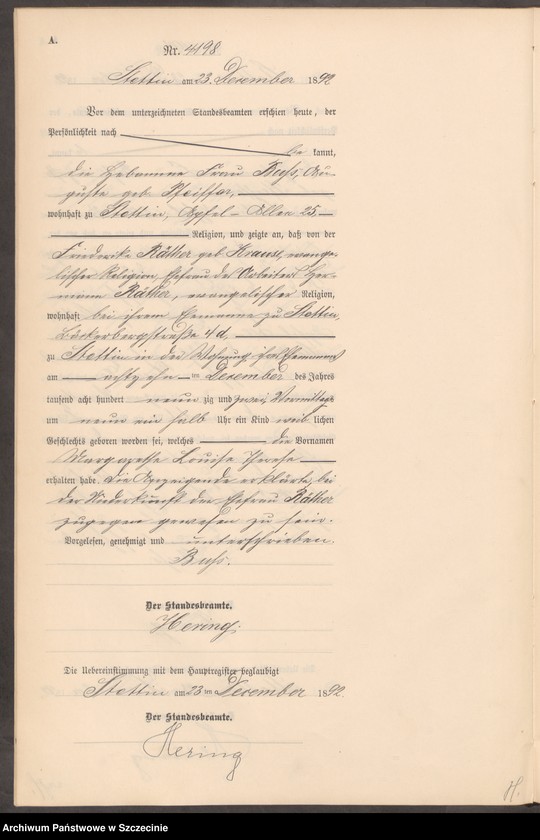 A.
Nr. 4198
Stettin am 23. Dezember 1892
Vor dem unterzeichneten Standesbeamten erschien heute, der
Persönlichkeit nach
be kannt,
die Hebamme Frau Buss, Au-
guste geb. Pfeiffer,
wohnhaft zu Stettin, Apfel-Allee 25,
Religion, und zeigte an, daß von der
Friederike Räther geb. Krause, evange-
lischer Religion, Ehefrau des Arbeiters Her-
mann Räther, evangelischer Religion,
wohnhaft bei ihrem Ehemanne zu Stettin,
Bäckerbergstraße
zu Stettin in der Wohnung ihres Ehemannes
am achtzehn ten Dezember des Jahres
tausend acht hundert neun zig und zwei Vormittags
um neun ein halb Uhr ein Kind weib lichen
Geschlechts geboren worden sei, welches die Vornamen
Margarethe Louise Therese
erhalten habe. Die Anzeigende erklärte, bei
der Niederkunft der Ehefrau Räther
zugegen gewesen zu sein.
Vorgelesen, genehmigt und unterschrieben.
Buss.
Der Standesbeamte.
Hering.
Die Uebereinstimmung mit dem Hauptregister beglaubigt
Stettin am 23 ten Dezember 1892.
Der Standesbeamte.
Hering
H.
Archiwum Państwowe w Szczecinie